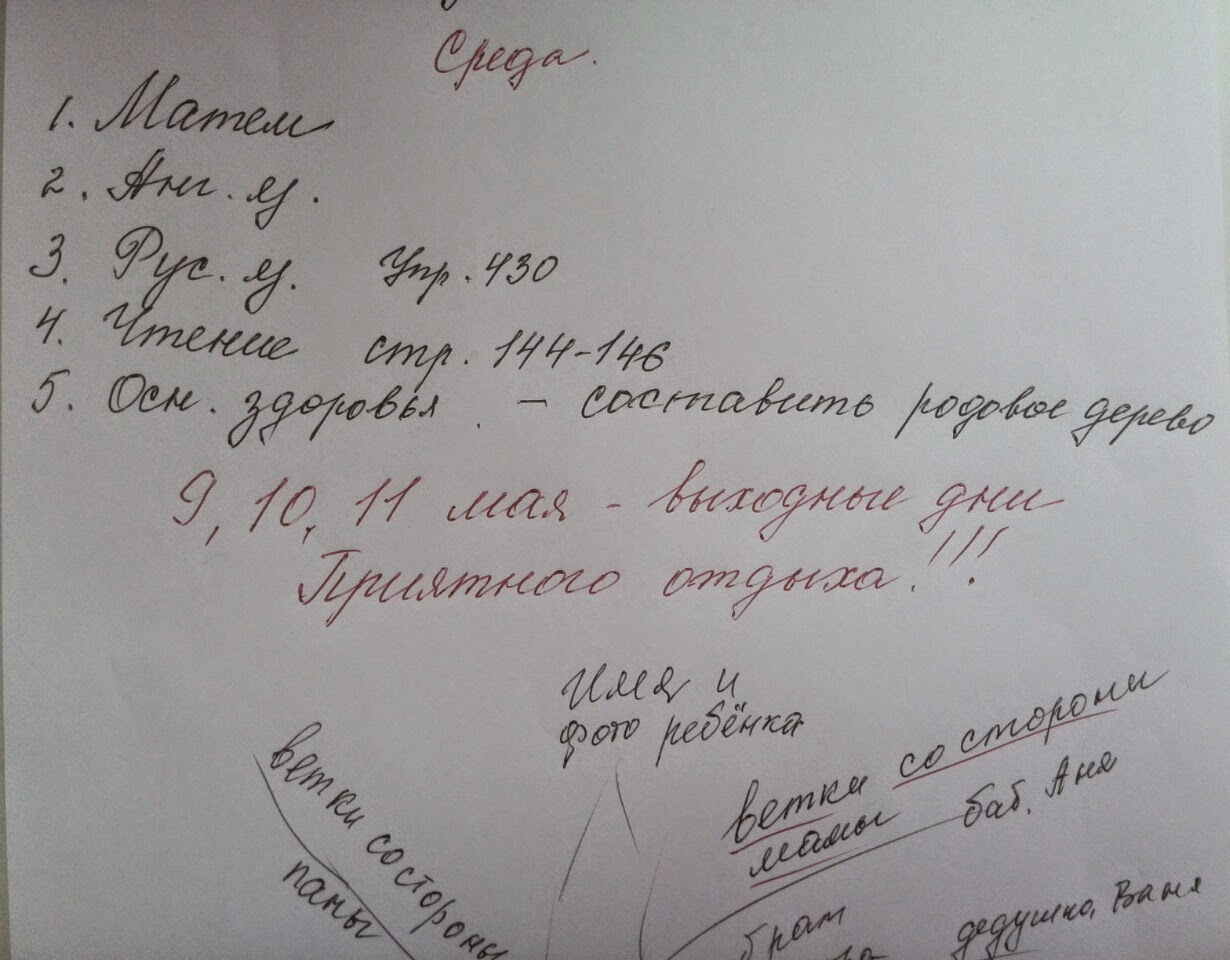 Среда.
1. Матем
2. Анг. яз.
3. Рус. яз. Упр. 430
4. Чтение стр. 144-146
5. Осн. здоровья - составить родовое дерево
9, 10, 11 мая - выходные дни
Приятного отдыха!!!
Имя и
фото ребёнка
ветки со стороны
папы
ветки со стороны
мамы
баб. Аня
брат
дедушка Ваня